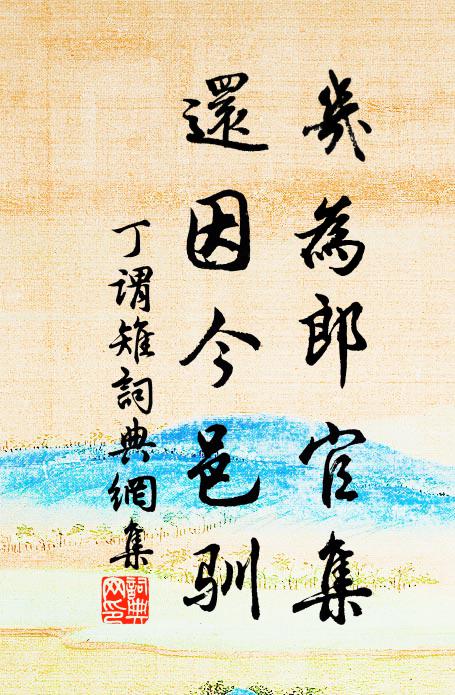 幾為郎官集
還因今邑馴
丁謂雉詞典網集
詞典网印